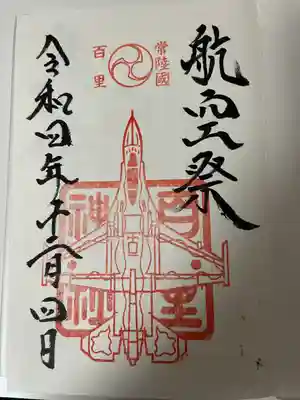 航空祭
常陸國
百里
百里神社
令和四年十二月四日